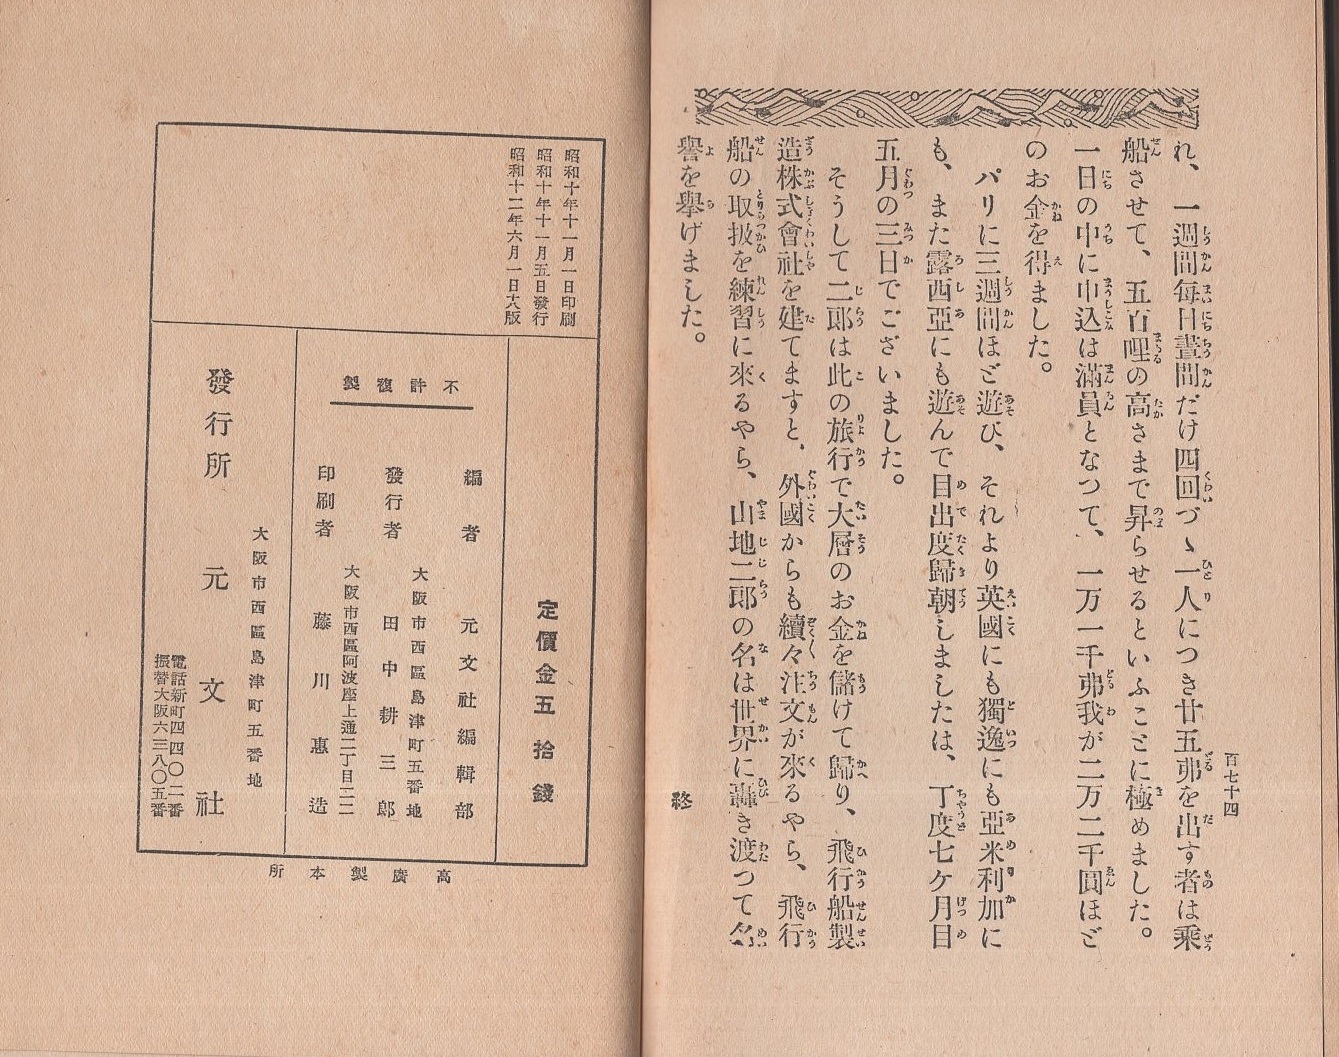 百七十四
れ、一週間毎日晝間だけ四回づゝ一人につき廿五弗を出す者は乘
船させて、五百哩の高さまで昇らせるといふことに極めました。
一日の中に申込は滿員となつて、一万一千弗我が二万二千圓ほど
のお金を得ました。
パリに三週間ほど遊び、それより英國にも獨逸にも亞米利加に
も、また露西亞にも遊んで目出度歸朝しましたは、丁度七ケ月目
五月の三日でございました。
そうして二郎は此の旅行で大層のお金を儲けて歸り、飛行船製
造株式會社を建てますと、外國からも續々注文が來るやら、飛行
船の取扱を練習に來るやら、山地二郎の名は世界に轟き渡つて名
譽を擧げました。
終
昭和十年十一月一日印刷
昭和十年十一月五日發行
昭和十二年六月一日大版
定價金五拾錢
不許複製
編者 元文社編輯部
大阪市西區島津町五番地
發行者 田中耕三郎
大阪市西區阿波座上通二丁目二二
印刷者 藤川惠造
大阪市西區島津町五番地
發行所 元文社
電話新町四四〇二番
振替大阪六三八〇五番
高廣製本所